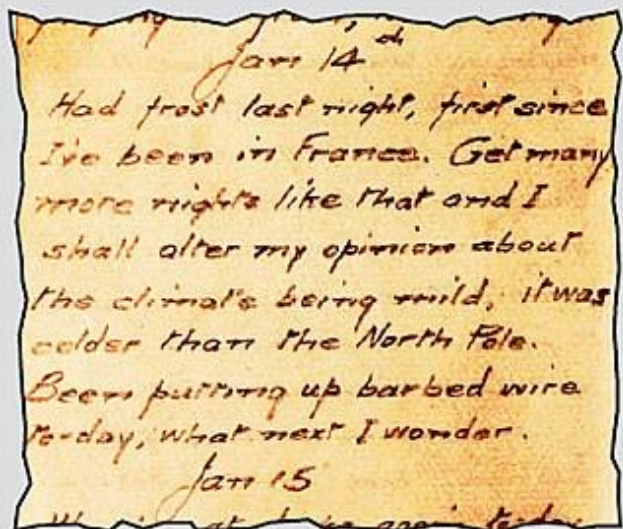 Jan 14th
Had frost last night, first since
I've been in France. Get many
more nights like that and I
shall alter my opinion about
the climate being mild, it was
colder than the North Pole.
Been putting up barbed wire
to-day, what next I wonder.
Jan 15